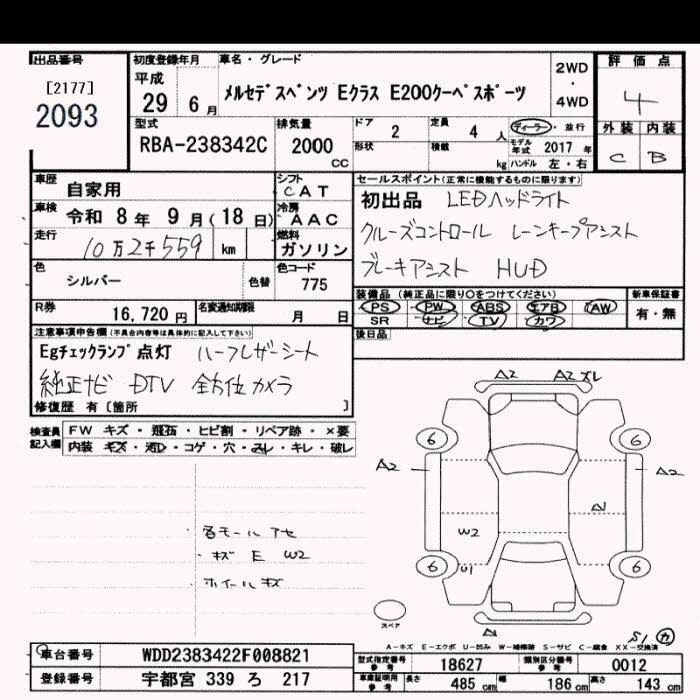 出品番号
[2177]
2093
初度登録年月
平成
29 6月
車名・グレード
メルセデスベンツ Eクラス E200クーペスポーツ
2WD
・
4WD
評価点
4
外装 内装
C B
型式
RBA-238342C
排気量
2000
CC
ドア 2
形状
定員 4 人
積載 kg
ディーラー・並行
モデル年式 2017 年
ハンドル 左・右
車歴 自家用
シフト
CAT
車検 令和 8年 9月(18日)
冷房
AAC
走行 10万2千559 km
燃料
ガソリン
色 シルバー 色替
色コード
775
R券 16,720円
名変通知期限 月 日
セールスポイント(正常に機能するものに限ります)
初出品 LEDヘッドライト
クルーズコントロール レーンキープアシスト
ブレーキアシスト HUD
装備品 (純正品に限り○をつけてください)
PS PW ABS エアB AW
SR ナビ TV カワ
新車保証書
有・無
後日品
注意事項申告欄(不具合内容等は具体的に記入して下さい)
Egチェックランプ点灯 ハーフレザーシート
純正ナビ DTV 全方位カメラ
修復歴 有〔箇所 〕
検査員記入欄
FW キズ・飛石・ヒビ割・リペア跡・×要
内装 キズ・汚レ・コゲ・穴・スレ・キレ・破レ
・各モールアセ
・キズ E W2
・ホイールキズ
A2 A2ズレ
6 6
A2 A2
A1
W2
6 U1 6
スペア
A1
S1 カ
A-キズ E-エクボ U-凹み W-補修跡 S-サビ C-腐食 XX-交換済
車台番号 WDD2383422F008821
登録番号 宇都宮 339 ろ 217
型式指定番号参考 18627
類別区分番号参考 0012
車庫証明用参考 長さ 485cm 幅 186cm 高さ 143cm